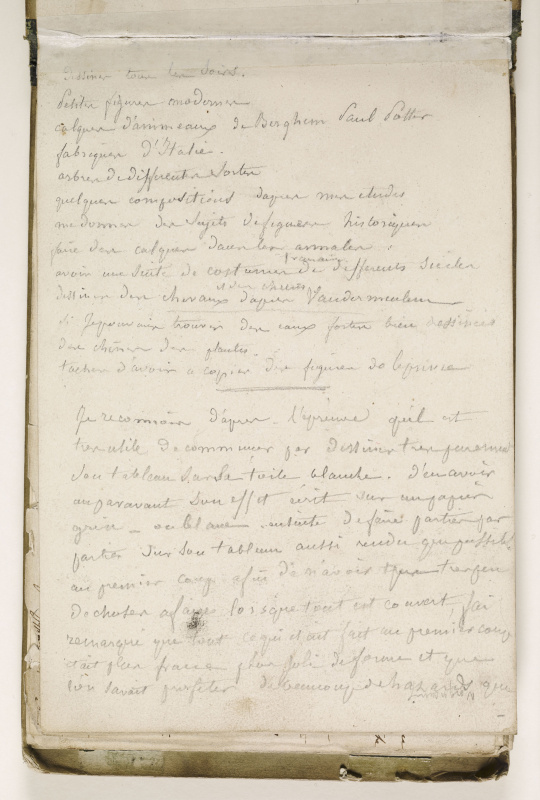 Dessiner tous les soirs.
Petites figures modernes
calquer d'animeaux de Berghem Paul Potter
fabriques d'Italie.
arbres de differentes sortes
quelques compositions d'apres mes etudes
me donner des sujets de figures historiques
faire des calques dans les annales
avoir une suite de costumes de differents siecles
francais
dessiner des chevaux d'apres Vandermeulen
et des chiens
si je pouvais trouver des eaux fortes bien dessinées
des chênes des plantes.
tacher d'avoir a copier des figures de leprince
Je reconnois d'apres l'epreuve qu'il est
tres utile de commencer par dessiner tres purement
son tableau sur sa toile blanche. d'en avoir
auparavant son effet écrit sur un papier
gris ou bleu ensuite de faire partie par
partie sur son tableau aussi rendu que possible
au premier coup afin de n'avoir que tres peu
de choses a faire lorsque tout est couvert, j'ai
remarqué que tout ce qui etait fait au premier coup
etait plus franc plus joli de forme et que
l'on savait profiter de beaucoup de hazards que